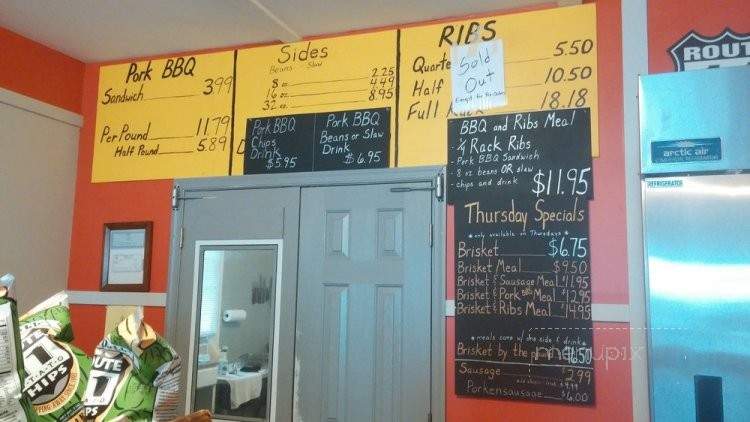 Pork BBQ
Sandwich 3.99
Per Pound 11.79
Half Pound 5.89
Sides
Beans Slaw
8 oz 2.25
16 oz 4.49
32 oz 8.95
D
RIBS
Quarte 5.50
Half 10.50
Full Rack 18.18
Sold
Out
Pork BBQ
Chips
Drink
$5.95
Pork BBQ
Beans or Slaw
Drink
$6.95
BBQ and Ribs Meal
- ¼ Rack Ribs
- Pork BBQ Sandwich
- 8 oz beans OR slaw
- chips and drink
$11.95
Thursday Specials
*only available on Thursdays*
Brisket $6.75
Brisket Meal $9.50
Brisket & Sausage Meal $11.95
Brisket & Pork BBQ Meal $12.95
Brisket & Ribs Meal $14.95
*meals come w/ one side & drink*
Brisket by the 16.50
Sausage $2.99
Porkensausage $6.00
menupix
ROUTE
arctic air
REFRIGERATOR
ROUTE
1
CHIPS
UTE
1
PS